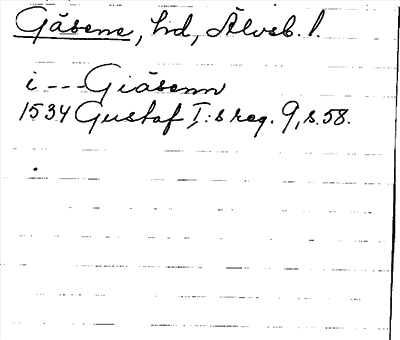 Gäsene, hd, Älvsb. l.
i --- Giäsenn
1534 Gustaf I:s reg. 9, s. 58.